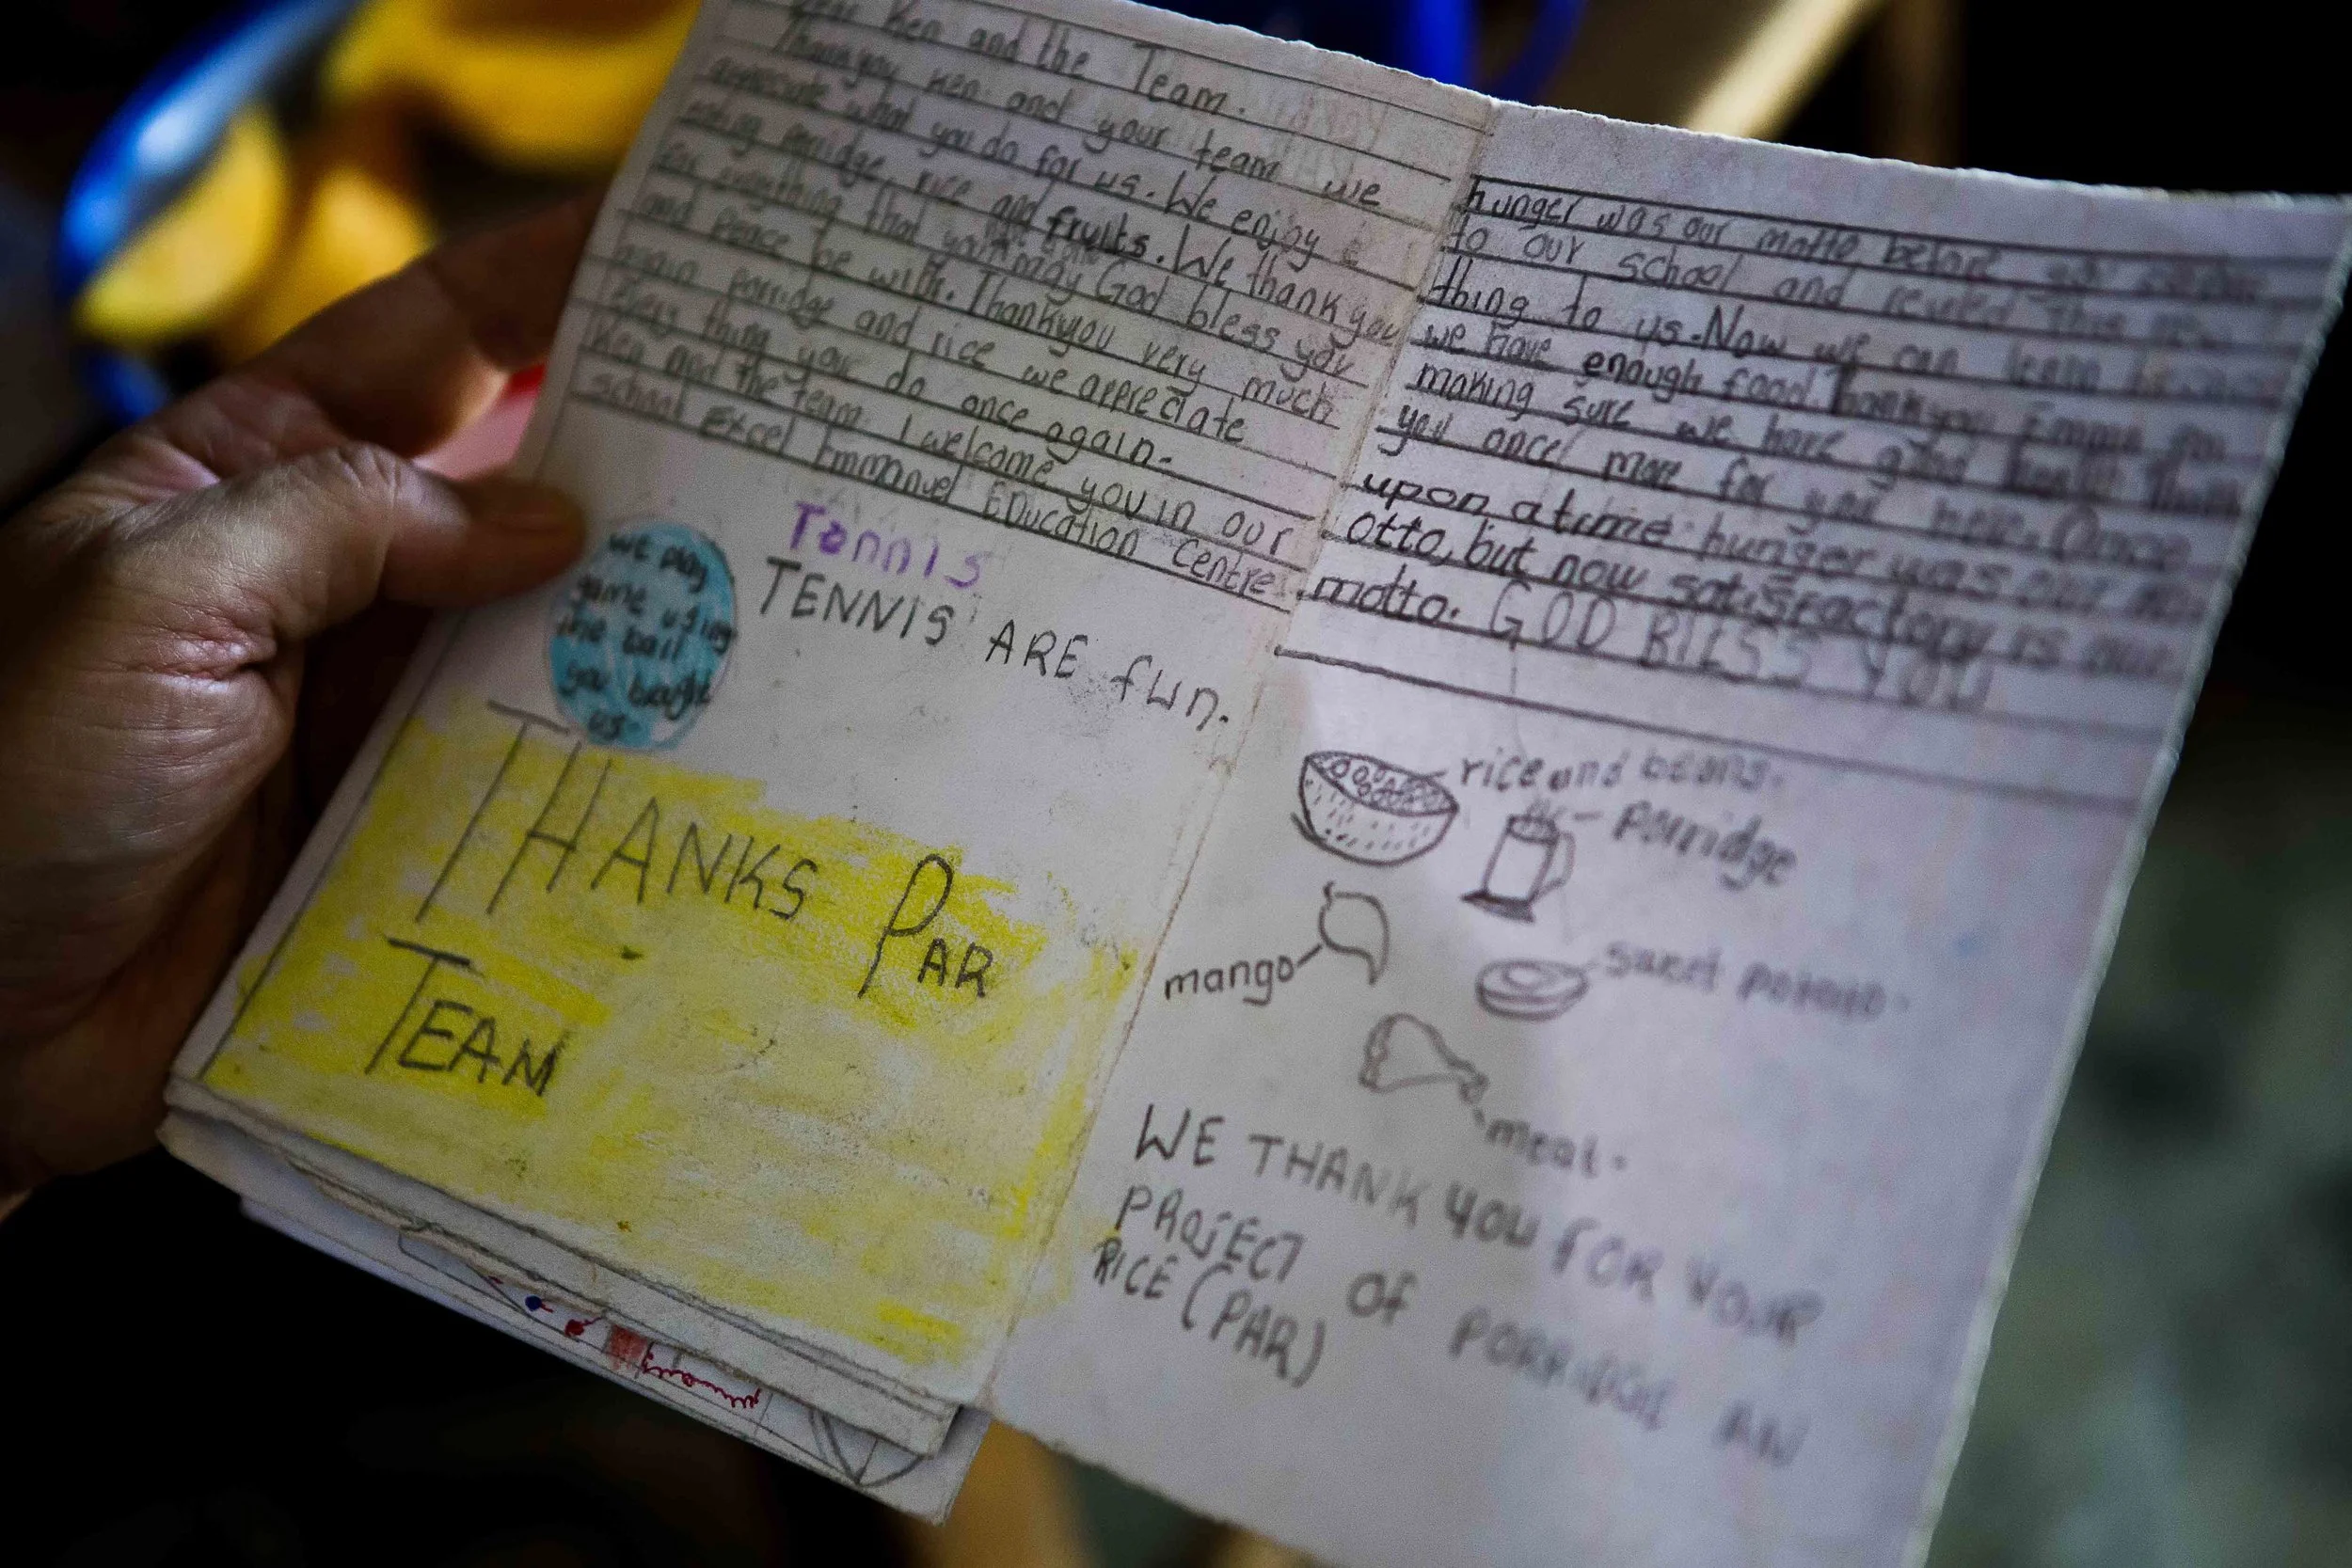 Ken and the Team.
Thankyou Ken and your team we
appreciate what you do for us. We enjoy
eating porridge, rice and fruits. We thank you
for anything that you may God bless you
and peace be with. Thankyou very much
again porridge and rice we appreciate
Every thing you do once again.
Ken and the team. I welcome you in our
school Excel Emmanuel Education Centre
we play
game using
the ball
you bought
us.
Tennis
TENNIS ARE fun.
THANKS PAR
TEAM
hunger was our motto before
to our school and
thing to us. Now we can learn because
we have enough food. Thankyou for
making sure we have good health Thank
you once more for your help. Once
upon a time hunger was our
otto, but now satisfactory is our
motto. GOD BILSS YOU
rice and beans.
Porridge
mango
sweet potato.
meat.
WE THANK YOU FOR YOUR
PROJECT OF PORRIDGE AN
RICE (PAR)